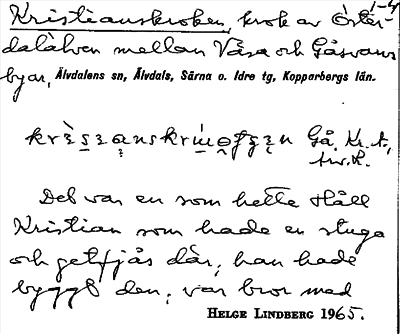 1-4
Kristianskroken, krok av Öster-
dalälven mellan Våsa och Gåsvans
byar, Älvdalens sn, Älvdals, Särna o. Idre tg, Kopparbergs län.
Gå. Kr. A.,
Det var en som hette Håll
Kristian som hade en stuga
och getfjås där, han hade
byggt den, var bror med
HELGE LINDBERG 1965.